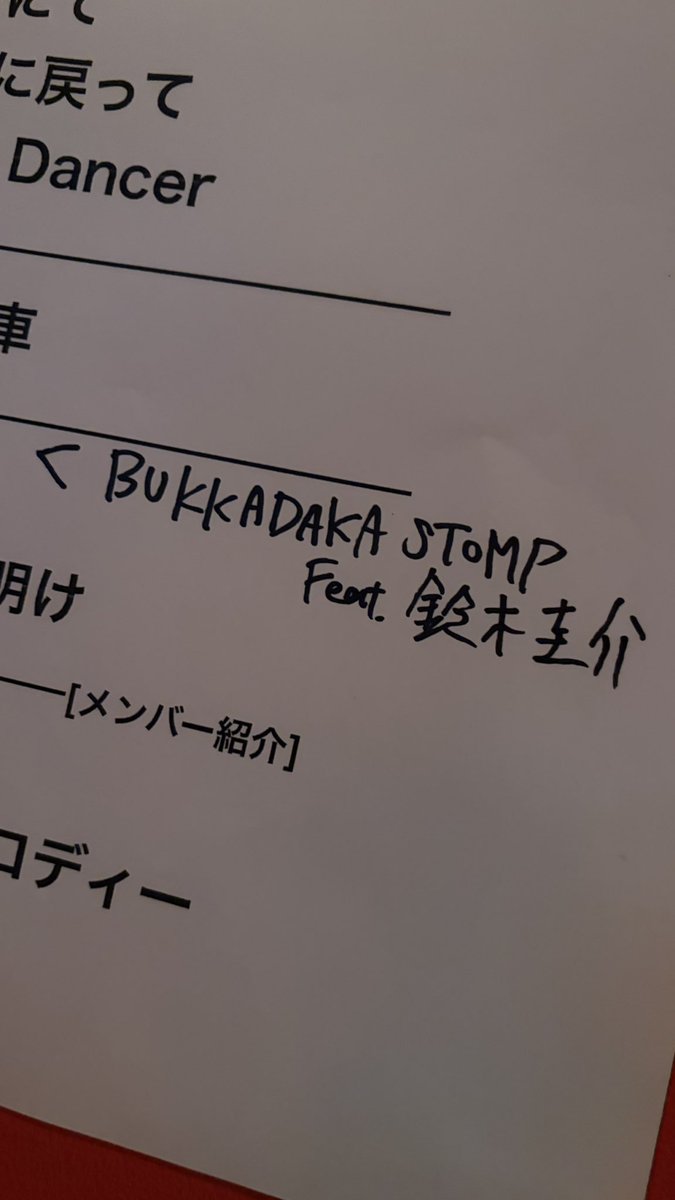 にて
に戻って
Dancer
車
< BUKKADAKA STOMP
Feat. 鈴木圭介
明け
[メンバー紹介]
ロディー